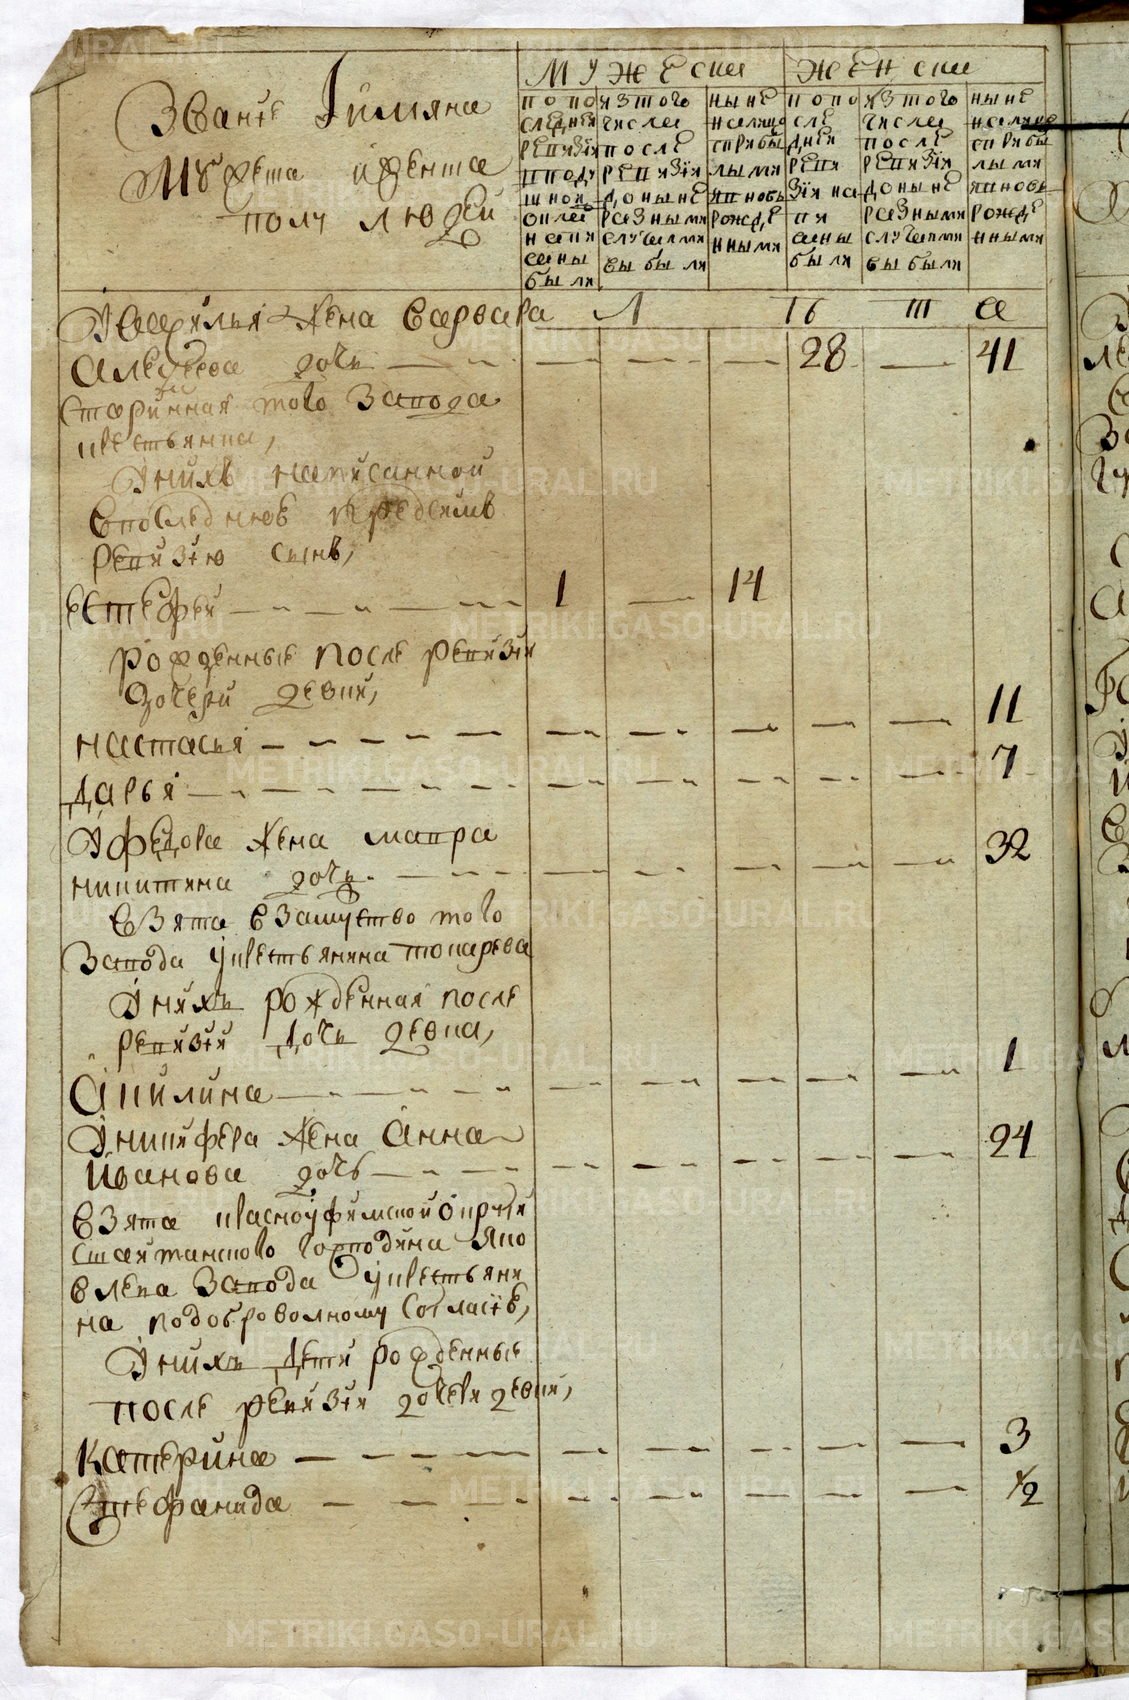 Званiе Iимяна
Мужеска иженска
полу людей
МУЖЕСКИ
ЖЕНСКИ
попо
следней
ревизiи
пподу
шной
окла
напи
саны
были
изтого
числа
после
ревизiи
доныне
разными
случаями
выбыли
ныне
налицо
стрибы
лыми
явновь
рожде
нными
попо
сле
дней
реви
зiи на
пи
саны
были
изтого
числа
после
ревизiи
доныне
разными
случаями
выбыли
ныне
налицо
стрибы
лыми
явновь
рожде
нными
Iвасилья жена варвара
дочь 28 41
старинная того завода
крестьянка,
Iнихъ написанной
впоследнюю передсимъ
ревизiю сынъ,
естефей 1 14
рожденные после ревизiи
дочери девки,
настасья 11
дарья 7
Iфедора жена мавра
никитина дочь 32
взята взамужство того
завода укрестьянина токарева
Iнихъ рожденная после
ревизiи дочь девка,
Акилина 1
Iникифера жена анна
Иванова дочь 24
взята красноуфимской округи
сшайтанского господина Яко
влева завода укрестьяни
на подобровольному согласiю,
Iнихъ дети рожденные
после ревизiи дочери девки,
Катерина 3
Стефанида 1/2
METRIKI.GASO-URAL.RU